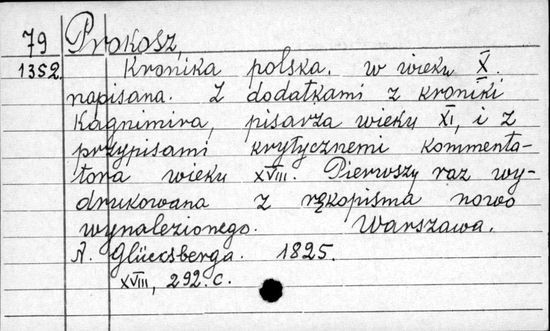 79 Prokosz,
1352. Kronika polska. w wieku X.
napisana. Z dodatkami z kroniki
Kagnimira, pisarza wieku XI, i z
przypisami krytycznemi kommenta-
tora wieku XVIII. Pierwszy raz wy-
drukowana z rękopisma nowo
wynalezionego. Warszawa.
N. Glücksberga. 1825.
XVIII, 292. c.